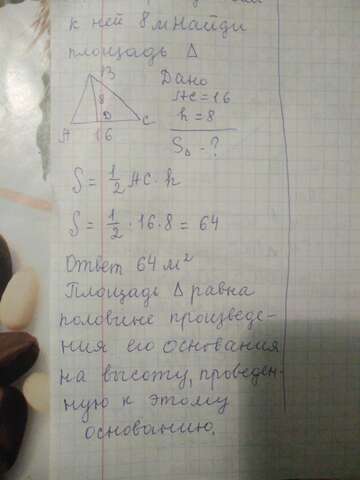 к ней 8 м Найди
площадь Δ
B
Дано
AC = 16
8
h = 8
D
A
16
C
SΔ - ?
S = 1/2 AC · h
S = 1/2 · 16 · 8 = 64
Ответ 64 м²
Площадь Δ равна
половине произведе-
ния его основания
на высоту, проведен-
ную к этому
основанию.